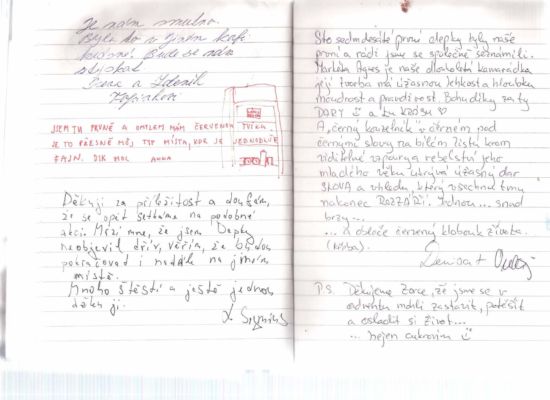 Je nám smutno.
Bylo to v jiném kafi
krásné! Bude se nám
stýskat
a Zdeněk
JSEM TU PRVNĚ A OMYLEM MÁM ČERVENOU TUŽKU.
JE TO PŘESNĚ MŮJ TYP MÍSTA, KDE JE JEDNODUŠE
FAJN. DÍK MOC ANNA
Děkuji za příležitost a doufám,
že se opět setkáme na podobné
akci. Mrzí mne, že jsem Depky
neobjevil dřív, věřím, že budou
pokračovat i nadále na jiném
místě.
Mnoho štěstí a ještě jednou
děkuji.
Sto sedmdesáté první depky byly naše
první a rádi jsme se společně seznámili.
Markéta je naše dlouholetá kamarádka
její tvorba má úžasnou lehkost a hloubku
moudrost a pravdivost. Bohudíky za ty
DARY a tu KRÁSU
A, černý kouzelník v černém pod
černými slovy na bílém listu krom
viditelné vzpoury a rebelství jeho
mladého věku ukrývá úžasný dar
SLOVA a vhledu, který všechnu tmu
nakonec ROZZÁŘÍ. Jednou... snad
brzy...
... a obleče červený klobouk života.
Lenka + Ondřej
P.S. Děkujeme Zorce, že jsme se v
adventu mohli zastavit, potěšit
a osladit si život...
... nejen cukrovím